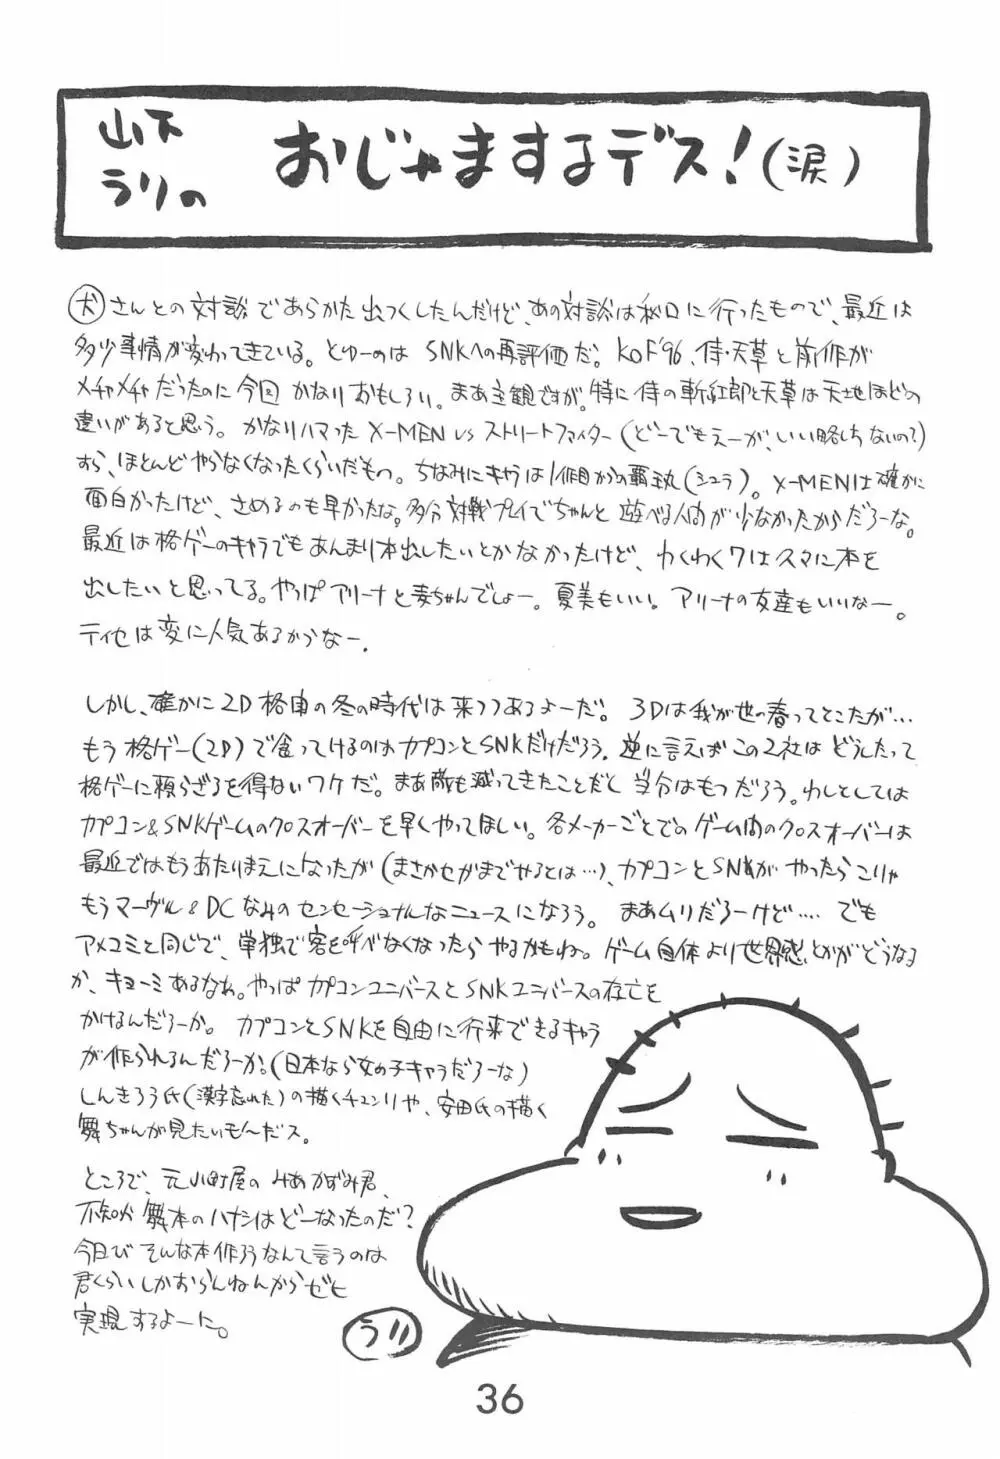 山下
ラリの
おじゃまするデス!(涙)
犬さんとの対談であらかた出つくしたんだけど、あの対談は秋口に行ったもので、最近は
多少事情が変わってきている。とゆーのはSNKへの再評価だ。KOF'96、侍・天草と前作が
メチャメチャだったのに今回かなりおもしろい。まあ主観ですが。特に侍の斬紅郎と天草は天地ほどの
違いがあると思う。かなりハマったX-MEN vs ストリートファイター(どーでもえーが、いい略しちないの?)
すら、ほとんどやらなくなったくらいだもの。ちなみにキャラは1作目からの覇王丸(シュラ)。X-MENは確かに
面白かったけど、さめるのも早かったな。多分対戦プレイでちゃんと遊べる人間が少なかったからだろーな。
最近は格ゲーのキャラでもあんまり本出したいとかなかったけど、わくわく7はスマに本を
出したいと思ってる。やっぱアリーナと麦ちゃんでしょー。夏美もいい。アリーナの友達もいいなー。
ティセは変に人気あるからなー.
しかし、確かに2D格闘の冬の時代は来つつあるよーだ。3Dは我が世の春ってとこたが…
もう格ゲー(2D)で食ってけるのはカプコンとSNKだけだろう。逆に言えばこの2社はどうしたって
格ゲーに頼らざるを得ないワケだ。まあ敵も減ってきたことだし当分はもつだろう。わしとしては
カプコン&SNKゲームのクロスオーバーを早くやってほしい。各メーカーごとでのゲーム間のクロスオーバーは
最近ではもうあたりまえになったが(まさかセガまでやるとは…)、カプコンとSNKがやったらこりゃ
もうマーヴル&DCなみのセンセーショナルなニュースになろう。まあムリだろーけど….でも
アメコミと同じで、単独で客を呼べなくなったらやるかもね。ゲーム自体より世界感とかがどうなる
か、キョーミあるなね。やっぱカプコンユニバースとSNKユニバースの存亡を
かけるんだろーか。カプコンとSNKを自由に行来できるキャラ
が作られるんだろーか。(日本なら女の子キャラだろーな)
しんきろう氏(漢字忘れた)の描くチュンリや、安田氏の描く
舞ちゃんが見たいも〜だス。
ところで、元小町屋のみあかずみ君、
不知火舞本のハナシはどーなったのだ?
今日びそんな本作ろうなんて言うのは
君くらいしかおらんねんからゼヒ
実現するよーに。
うり
36